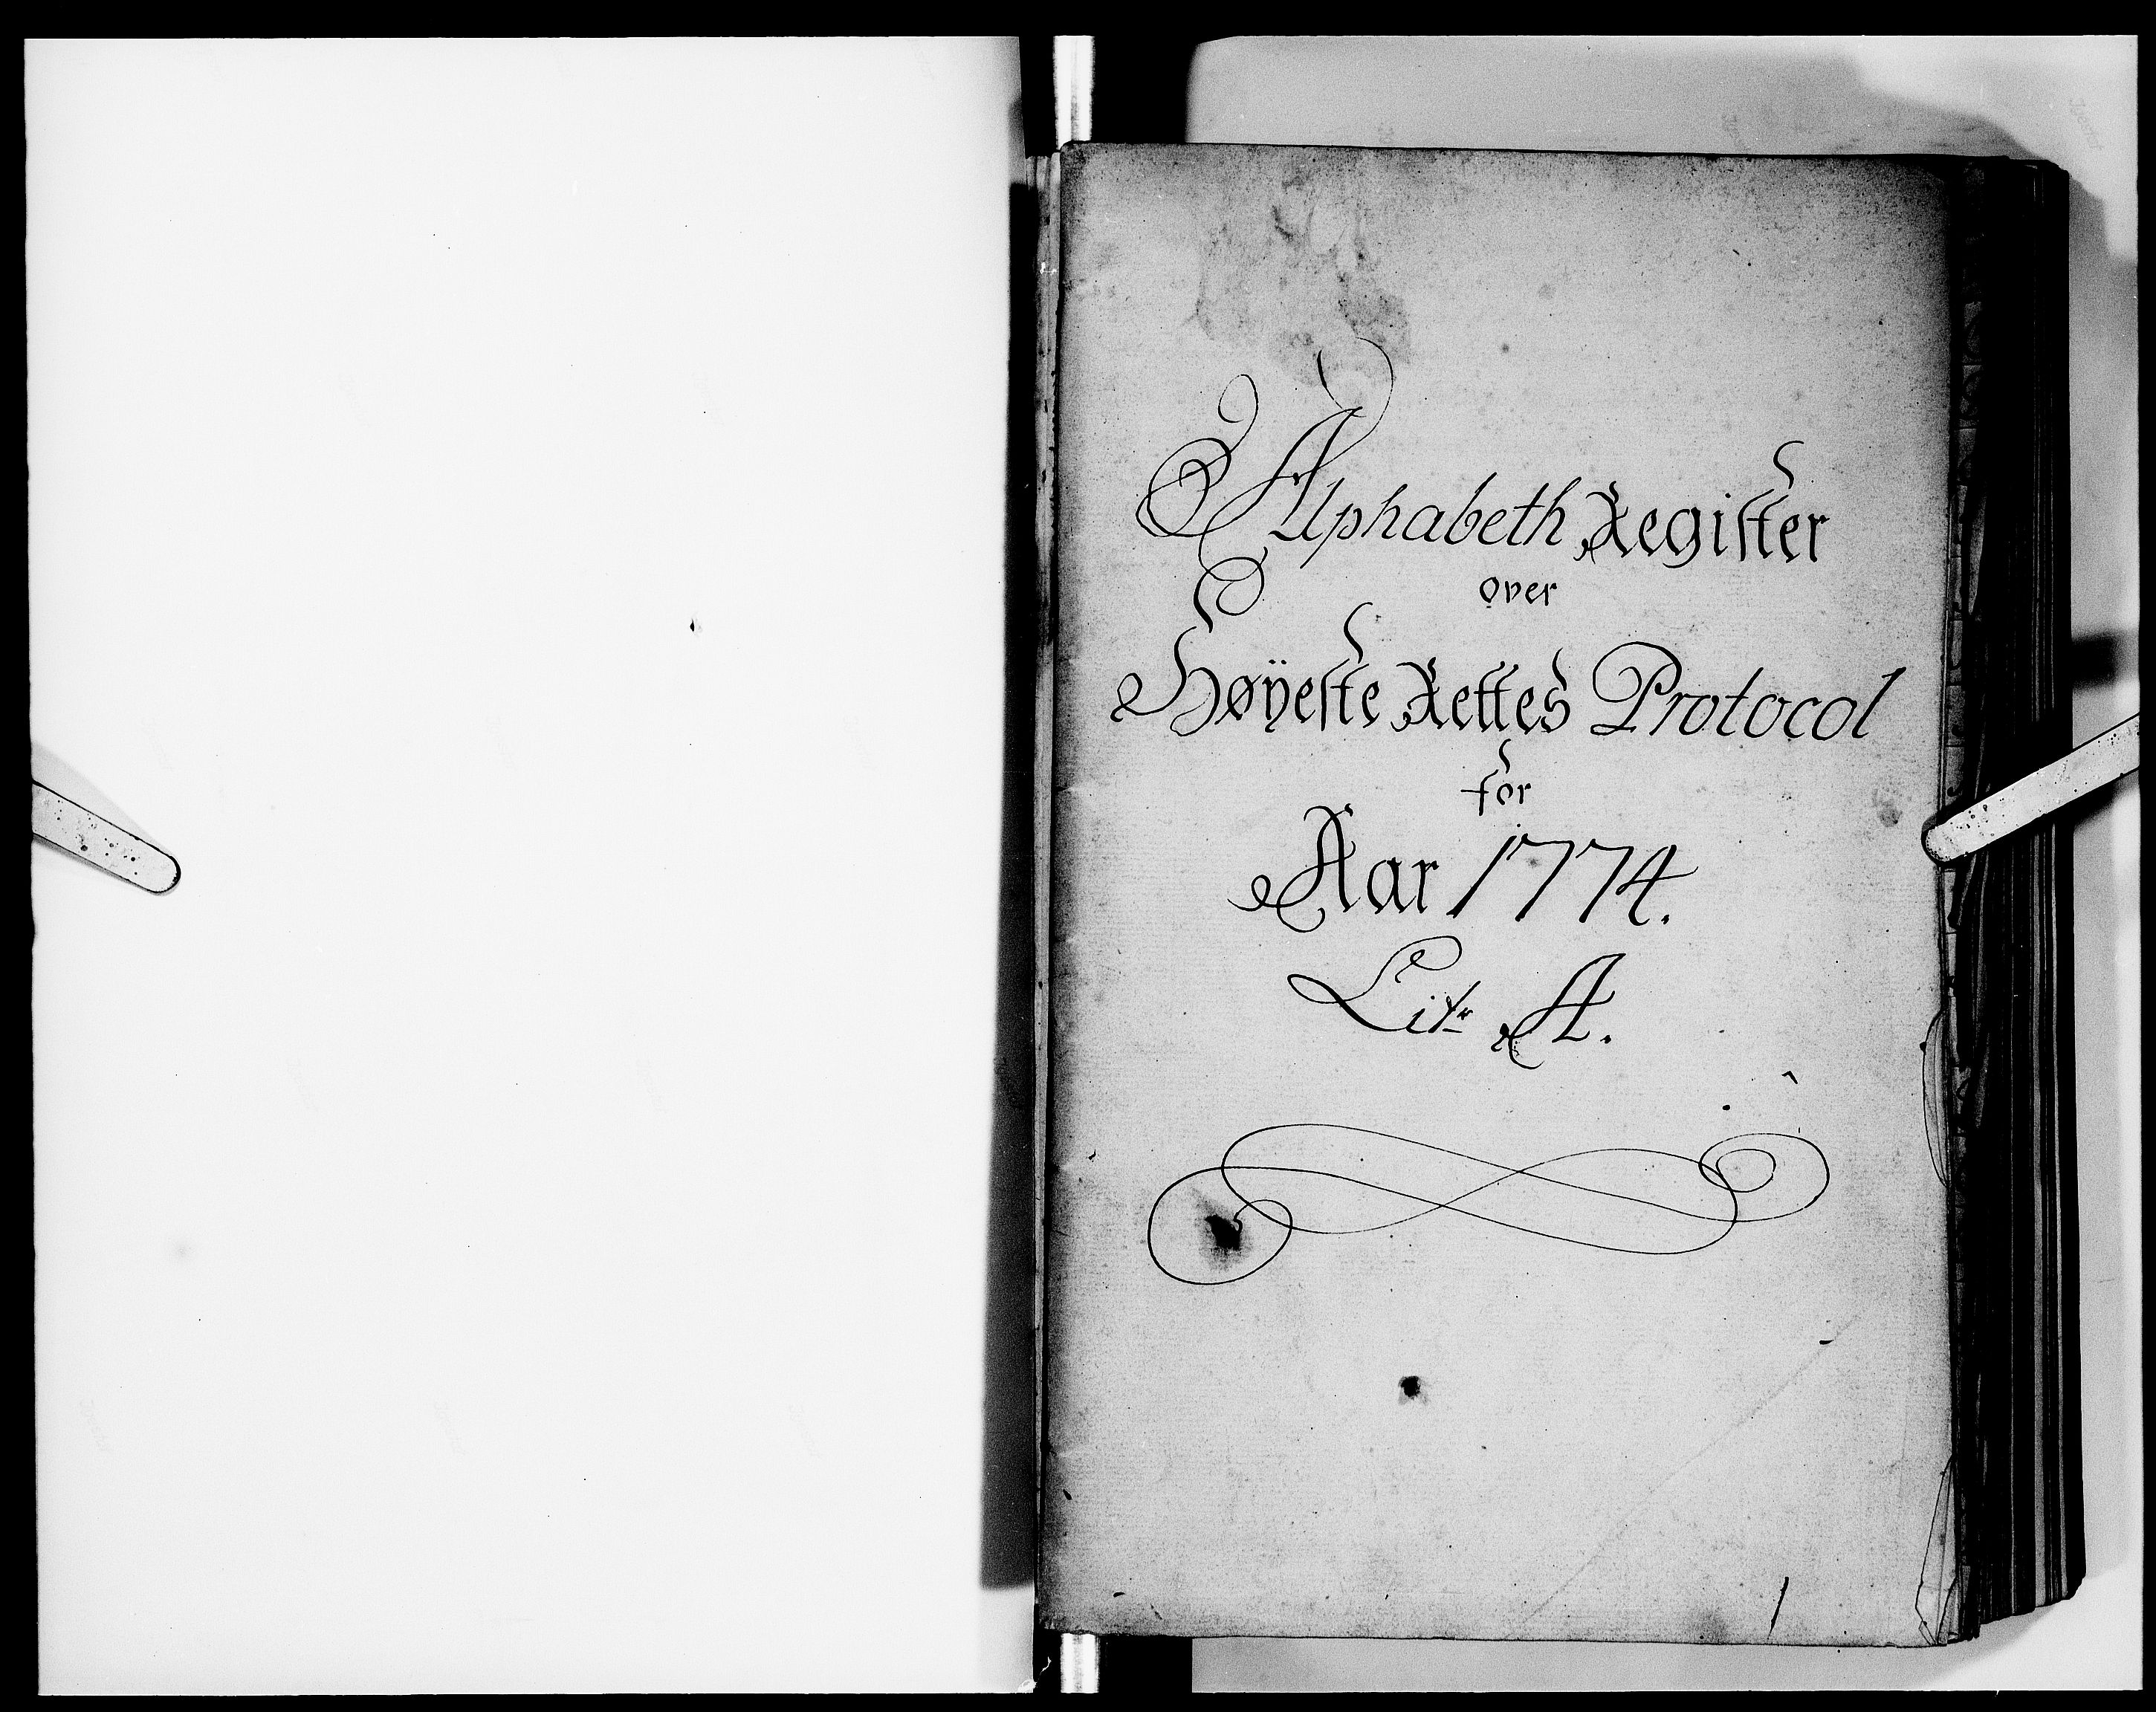 Alphabeth Register
over
Høÿeste Rettes Protocol
for
Aar 1774.
Litr A.